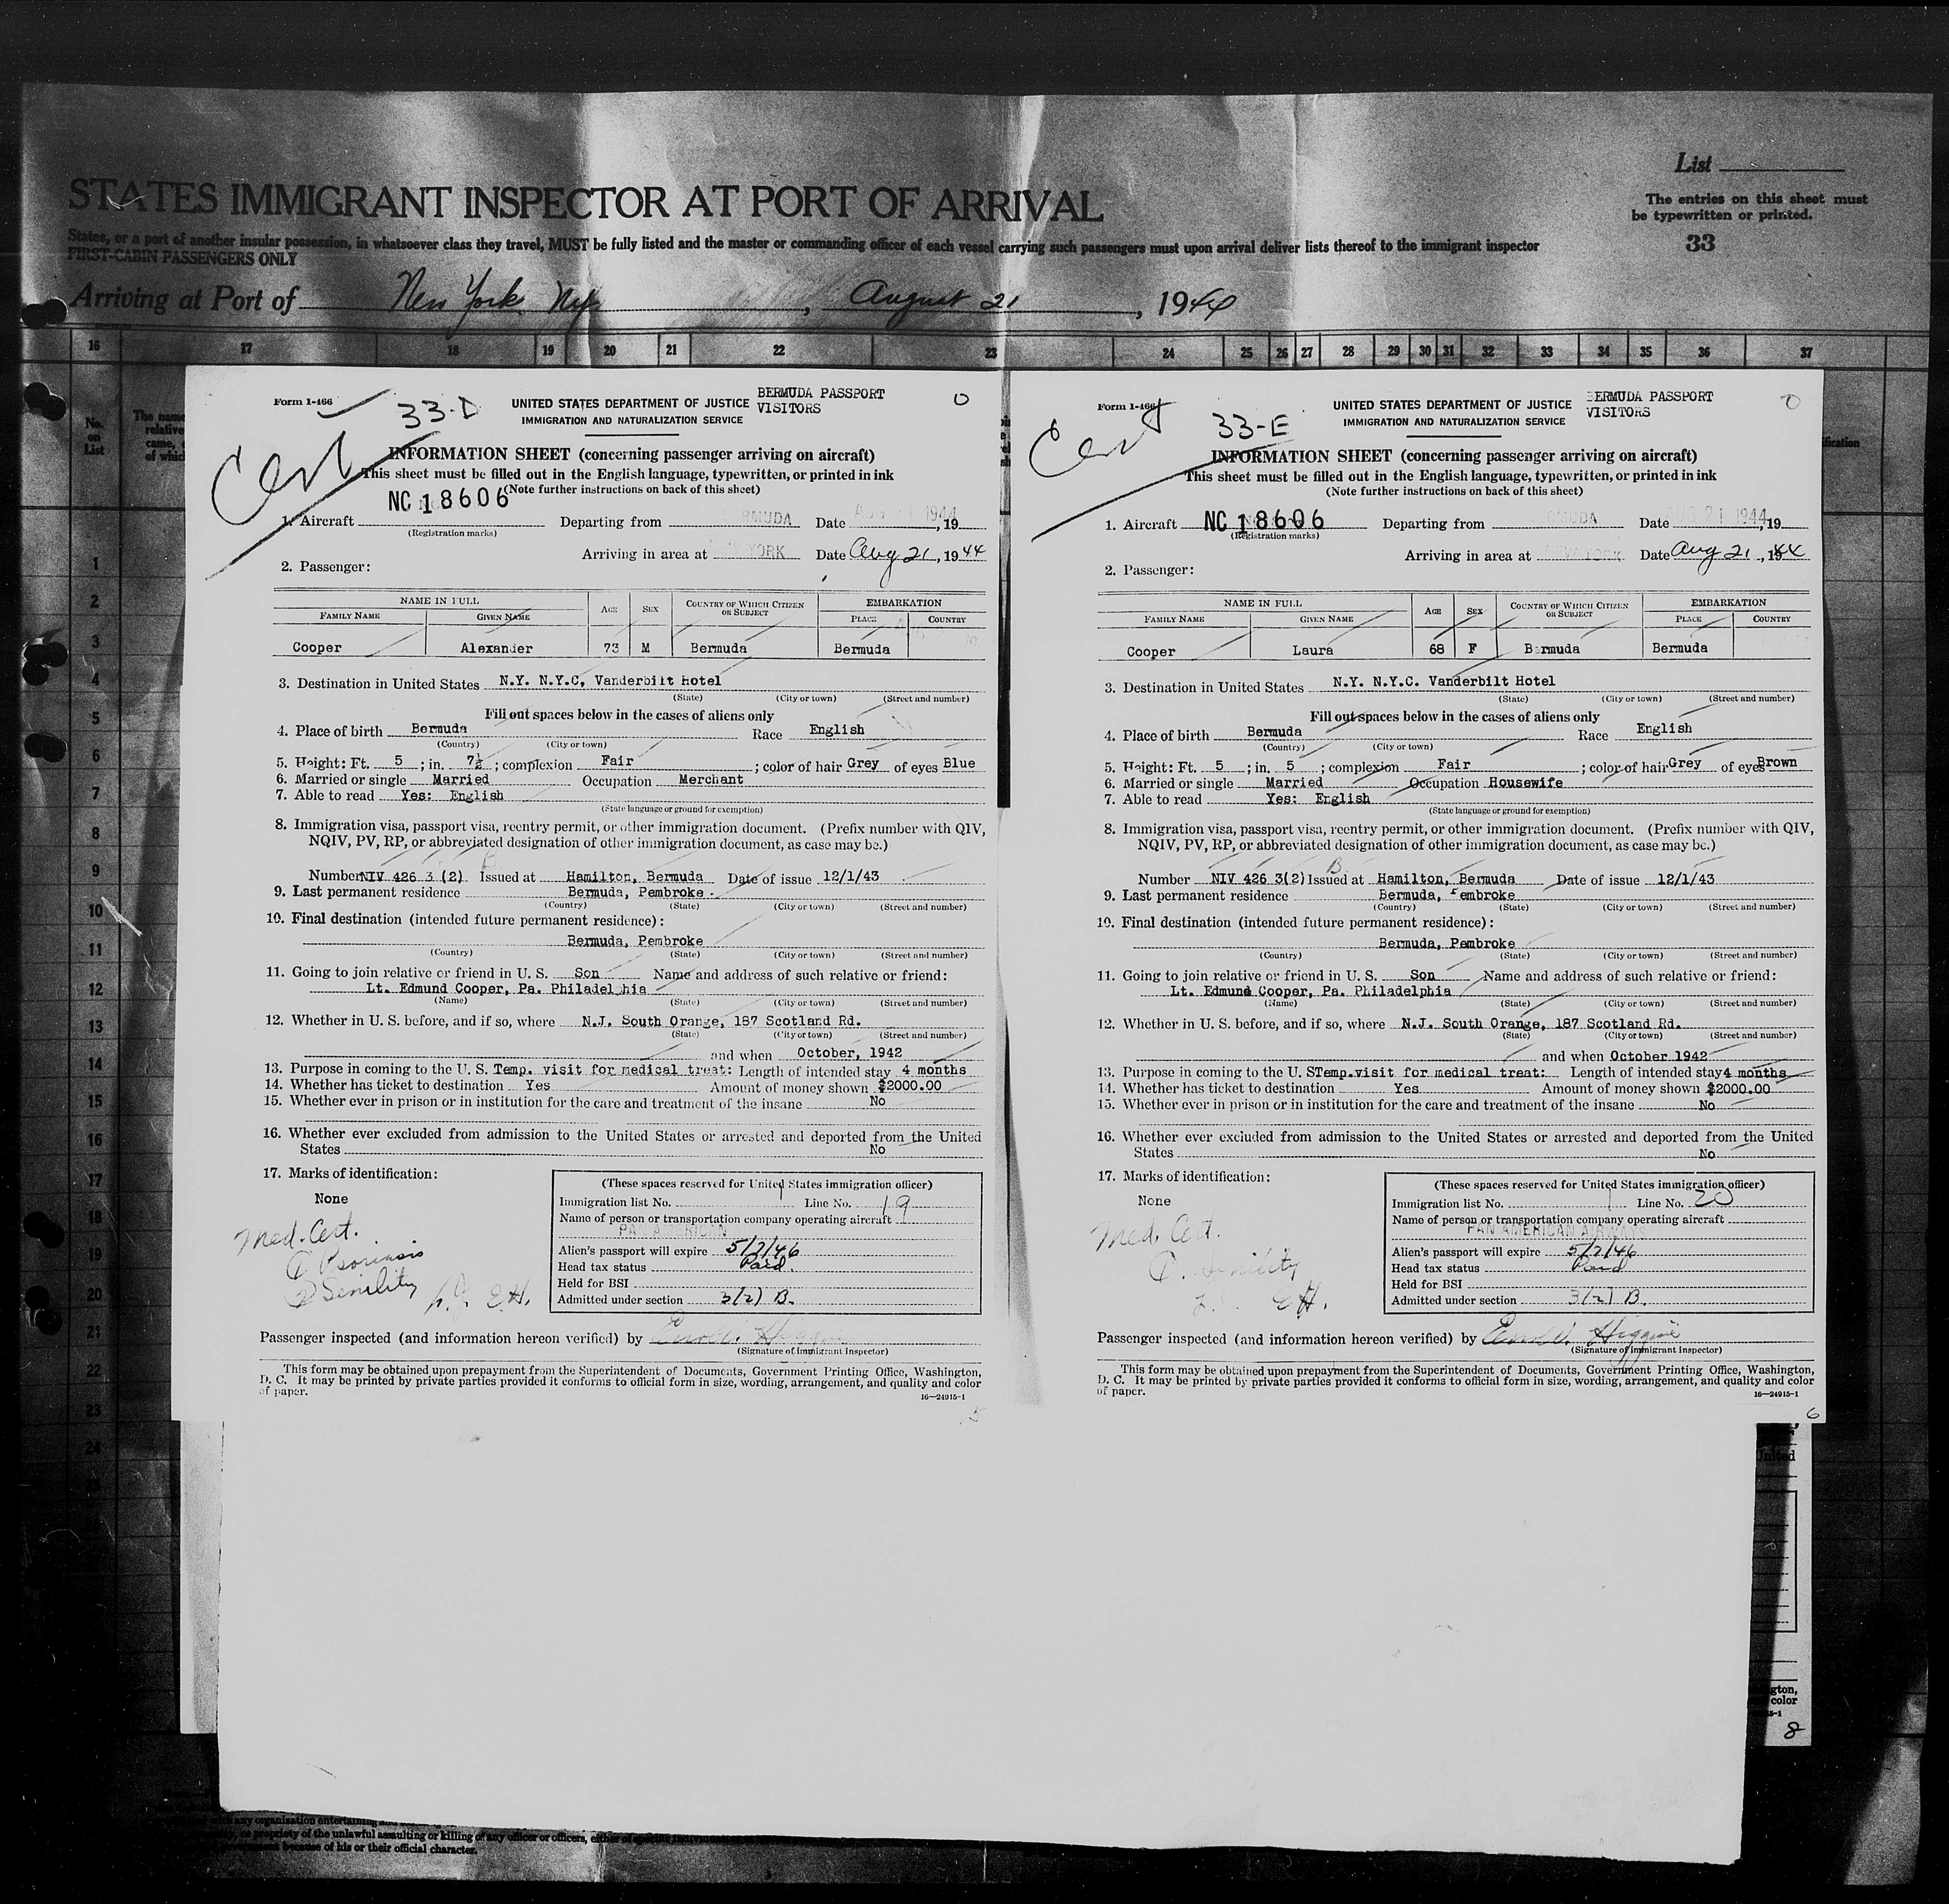 List
The entries on this sheet must
be typewritten or printed.
33
STATES IMMIGRANT INSPECTOR AT PORT OF ARRIVAL
States, or a port of another insular possession, in whatsoever class they travel, MUST be fully listed and the master or commanding officer of each vessel carrying such passengers must upon arrival deliver lists thereof to the immigrant inspector
FIRST-CABIN PASSENGERS ONLY
Arriving at Port of New York, Ny, August 21, 1944
16 17 18 19 20 21 22 23 24 25 26 27 28 29 30 31 32 33 34 35 36 37
No. on List
1
2
3
4
5
6
7
8
9
10
11
12
13
14
15
16
17
18
19
20
21
22
23
24
Form I-466
33-D
UNITED STATES DEPARTMENT OF JUSTICE
BERMUDA PASSPORT
VISITORS
IMMIGRATION AND NATURALIZATION SERVICE
Cert
INFORMATION SHEET (concerning passenger arriving on aircraft)
This sheet must be filled out in the English language, typewritten, or printed in ink
(Note further instructions on back of this sheet)
1. Aircraft NC 18606 Departing from BERMUDA Date AUG 21 1944, 19
(Registration marks)
Arriving in area at NEW YORK Date Aug 21, 1944
2. Passenger:
NAME IN FULL AGE SEX COUNTRY OF WHICH CITIZEN OR SUBJECT EMBARKATION
FAMILY NAME GIVEN NAME PLACE COUNTRY
Cooper Alexander 73 M Bermuda Bermuda
3. Destination in United States N.Y. N.Y.C, Vanderbilt Hotel
(State) (City or town) (Street and number)
Fill out spaces below in the cases of aliens only
4. Place of birth Bermuda Race English
(Country) (City or town)
5. Height: Ft. 5 ; in. 7½ ; complexion Fair ; color of hair Grey of eyes Blue
6. Married or single Married Occupation Merchant
7. Able to read Yes: English
(State language or ground for exemption)
8. Immigration visa, passport visa, reentry permit, or other immigration document. (Prefix number with QIV,
NQIV, PV, RP, or abbreviated designation of other immigration document, as case may be.)
Number NIV 426 3 (2) Issued at Hamilton, Bermuda Date of issue 12/1/43
9. Last permanent residence Bermuda, Pembroke
(Country) (State) (City or town) (Street and number)
10. Final destination (intended future permanent residence):
Bermuda, Pembroke
(Country) (State) (City or town) (Street and number)
11. Going to join relative or friend in U. S. Son Name and address of such relative or friend:
Lt. Edmund Cooper, Pa. Philadelphia
(Name) (State) (City or town) (Street and number)
12. Whether in U. S. before, and if so, where N.J. South Orange, 187 Scotland Rd.
(State) (City or town) (Street and number)
and when October, 1942
13. Purpose in coming to the U. S. Temp. visit for medical treat: Length of intended stay 4 months
14. Whether has ticket to destination Yes Amount of money shown $2000.00
15. Whether ever in prison or in institution for the care and treatment of the insane No
16. Whether ever excluded from admission to the United States or arrested and deported from the United
States No
17. Marks of identification:
None
Med. Cert.
① Psoriasis
② Senility
E.H.
(These spaces reserved for United States immigration officer)
Immigration list No. 1 Line No. 19
Name of person or transportation company operating aircraft
PAN AMERICAN
Alien's passport will expire 5/2/46
Head tax status Paid.
Held for BSI
Admitted under section 3(2) B.
Passenger inspected (and information hereon verified) by
(Signature of immigrant inspector)
This form may be obtained upon prepayment from the Superintendent of Documents, Government Printing Office, Washington,
D. C. It may be printed by private parties provided it conforms to official form in size, wording, arrangement, and quality and color
of paper.
16—24915-1
5
Form I-466
33-E
UNITED STATES DEPARTMENT OF JUSTICE
BERMUDA PASSPORT
VISITORS
IMMIGRATION AND NATURALIZATION SERVICE
Cert
INFORMATION SHEET (concerning passenger arriving on aircraft)
This sheet must be filled out in the English language, typewritten, or printed in ink
(Note further instructions on back of this sheet)
1. Aircraft NC 18606 Departing from BERMUDA Date AUG 21 1944, 19
(Registration marks)
Arriving in area at NEW YORK Date Aug 21, 1944
2. Passenger:
NAME IN FULL AGE SEX COUNTRY OF WHICH CITIZEN OR SUBJECT EMBARKATION
FAMILY NAME GIVEN NAME PLACE COUNTRY
Cooper Laura 68 F Bermuda Bermuda
3. Destination in United States N.Y. N.Y.C. Vanderbilt Hotel
(State) (City or town) (Street and number)
Fill out spaces below in the cases of aliens only
4. Place of birth Bermuda Race English
(Country) (City or town)
5. Height: Ft. 5 ; in. 5 ; complexion Fair ; color of hair Grey of eyes Brown
6. Married or single Married Occupation Housewife
7. Able to read Yes: English
(State language or ground for exemption)
8. Immigration visa, passport visa, reentry permit, or other immigration document. (Prefix number with QIV,
NQIV, PV, RP, or abbreviated designation of other immigration document, as case may be.)
B
Number NIV 426 3(2) Issued at Hamilton, Bermuda Date of issue 12/1/43
9. Last permanent residence Bermuda, Pembroke
(Country) (State) (City or town) (Street and number)
10. Final destination (intended future permanent residence):
Bermuda, Pembroke
(Country) (State) (City or town) (Street and number)
11. Going to join relative or friend in U. S. Son Name and address of such relative or friend:
Lt. Edmund Cooper, Pa. Philadelphia
(Name) (State) (City or town) (Street and number)
12. Whether in U. S. before, and if so, where N.J. South Orange, 187 Scotland Rd.
(State) (City or town) (Street and number)
and when October 1942
13. Purpose in coming to the U. S Temp.visit for medical treat: Length of intended stay 4 months
14. Whether has ticket to destination Yes Amount of money shown $2000.00
15. Whether ever in prison or in institution for the care and treatment of the insane No
16. Whether ever excluded from admission to the United States or arrested and deported from the United
States No
17. Marks of identification:
None
Med. Cert.
① Senility
E.H.
(These spaces reserved for United States immigration officer)
Immigration list No. 1 Line No. 20
Name of person or transportation company operating aircraft
PAN AMERICAN AIRWAYS
Alien's passport will expire 5/2/46
Head tax status Paid
Held for BSI
Admitted under section 3(2) B.
Passenger inspected (and information hereon verified) by
(Signature of immigrant inspector)
This form may be obtained upon prepayment from the Superintendent of Documents, Government Printing Office, Washington,
D. C. It may be printed by private parties provided it conforms to official form in size, wording, arrangement, and quality and color
of paper.
16—24915-1
6
color
8
with any organization entertaining
or propriety of the unlawful assaulting or killing of any officer or officers, either of
because of his or their official character.